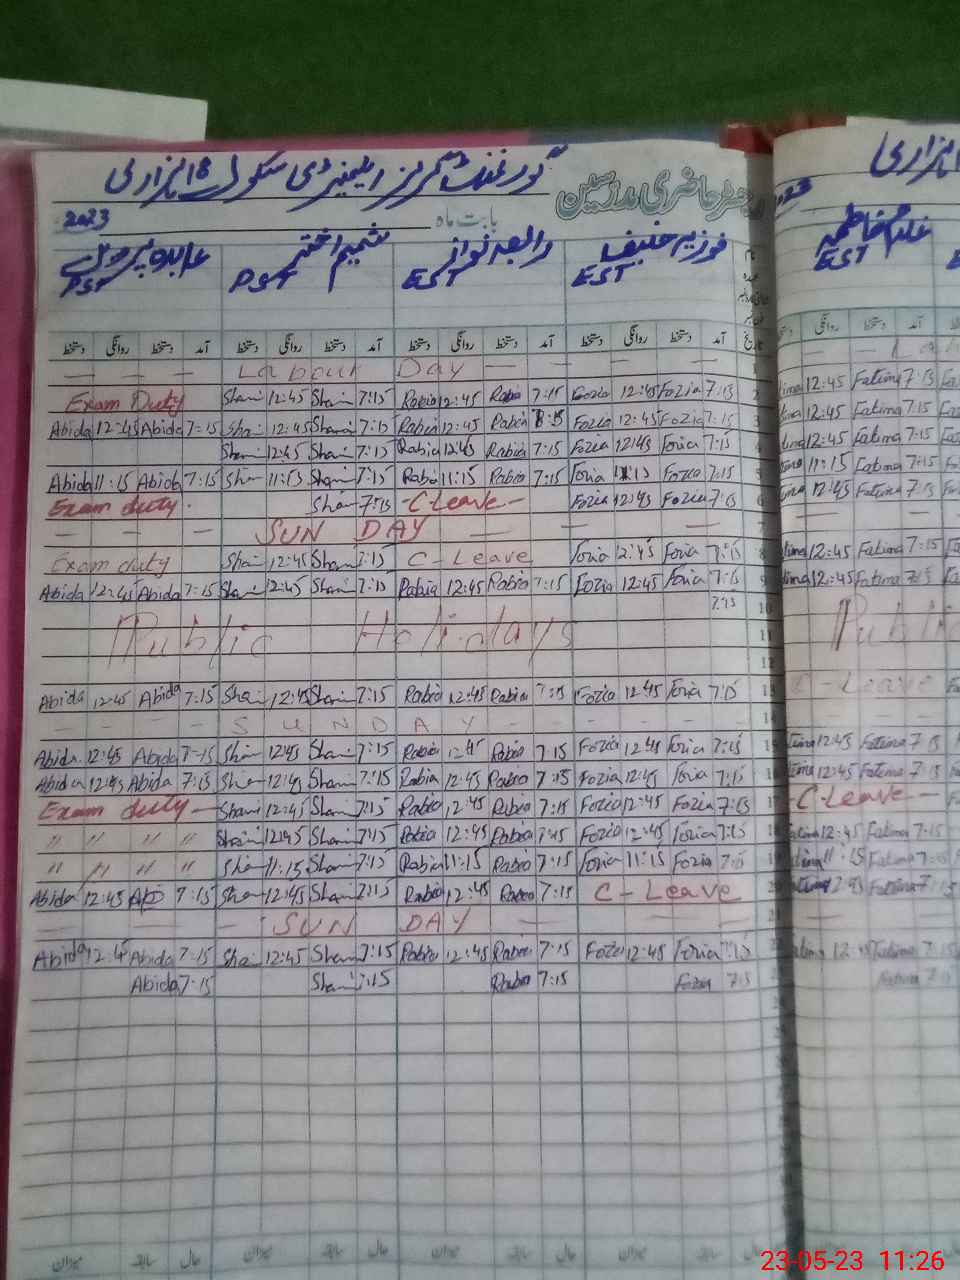 گورنمنٹ گرلز ایلیمنٹری سکول 18 ہزاری
رجسٹر حاضری مدرسین
بابت ماہ 2023
فوزیہ حنیف رابعہ نواز شمیم اختر عابدہ پروین
EST EST PST PST
غلام فاطمہ
EST
تاریخ آمد دستخط روانگی دستخط آمد دستخط روانگی دستخط آمد دستخط روانگی دستخط آمد دستخط روانگی دستخط
1 Labour Day
Exam Duty Sham 12:45 Sham 7:15 Rabia 12:45 Rabia 7:15 Fozia 12:45 Fozia 7:15 2 12:45 Fatima 7:15
Abida 12:45 Abida 7:15 Sham 12:45 Sham 7:15 Rabia 12:45 Rabia 7:15 Fozia 12:45 Fozia 7:15 3 12:45 Fatima 7:15
Sham 12:45 Sham 7:15 Rabia 12:45 Rabia 7:15 Fozia 12:45 Fozia 7:15 4 12:45 Fatima 7:15
Abida 11:15 Abida 7:15 Sham 11:15 Sham 7:15 Rabia 11:15 Rabia 7:15 Fozia 11:15 Fozia 7:15 5 11:15 Fatima 7:15
Exam duty. Sham 7:15 -C Leave- Fozia 12:45 Fozia 7:15 6 12:45 Fatima 7:15
SUN DAY 7
Exam duty Sham 12:45 Sham 7:15 C-Leave Fozia 12:45 Fozia 7:15 8 12:45 Fatima 7:15
Abida 12:45 Abida 7:15 Sham 12:45 Sham 7:15 Rabia 12:45 Rabia 7:15 Fozia 12:45 Fozia 7:15 9 12:45 Fatima 7:15
7:15 10
Public Holidays 11 Public
12
Abida 12:45 Abida 7:15 Sham 12:45 Sham 7:15 Rabia 12:45 Rabia 7:15 Fozia 12:45 Fozia 7:15 13 C-Leave
SUNDAY 14
Abida 12:45 Abida 7:15 Sham 12:45 Sham 7:15 Rabia 12:45 Rabia 7:15 Fozia 12:45 Fozia 7:15 15 12:45 Fatima 7:15
Abida 12:45 Abida 7:15 Sham 12:45 Sham 7:15 Rabia 12:45 Rabia 7:15 Fozia 12:45 Fozia 7:15 16 12:45 Fatima 7:15
Exam duty - Sham 12:45 Sham 7:15 Rabia 12:45 Rabia 7:15 Fozia 12:45 Fozia 7:15 17 -C-Leave-
" " " " Sham 12:45 Sham 7:15 Rabia 12:45 Rabia 7:15 Fozia 12:45 Fozia 7:15 18 12:45 Fatima 7:15
" " " " Sham 11:15 Sham 7:15 Rabia 11:15 Rabia 7:15 Fozia 11:15 Fozia 7:15 19 11:15 Fatima 7:15
Abida 12:45 7:15 Sham 12:45 Sham 7:15 Rabia 12:45 Rabia 7:15 C-Leave 20 12:45 Fatima 7:15
SUN DAY 21
Abida 12:45 Abida 7:15 Sham 12:45 Sham 7:15 Rabia 12:45 Rabia 7:15 Fozia 12:45 Fozia 7:15 22 12:45 Fatima 7:15
Abida 7:15 Sham 7:15 Rabia 7:15 Fozia 7:15 Fatima 7:15
حال سابقہ میزان حال سابقہ میزان حال سابقہ میزان حال سابقہ میزان
23-05-23 11:26